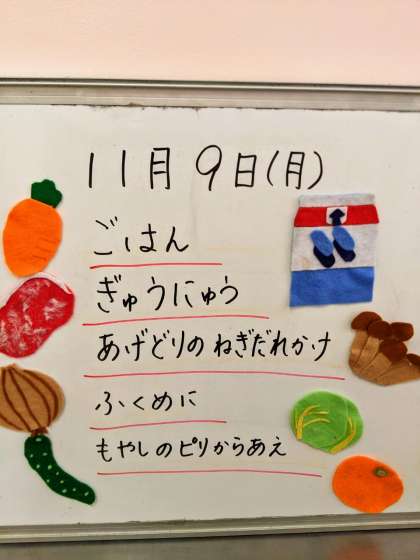 11月9日(月)
ごはん
ぎゅうにゅう
あげどりのねぎだれかけ
ふくめに
もやしのピリからあえ